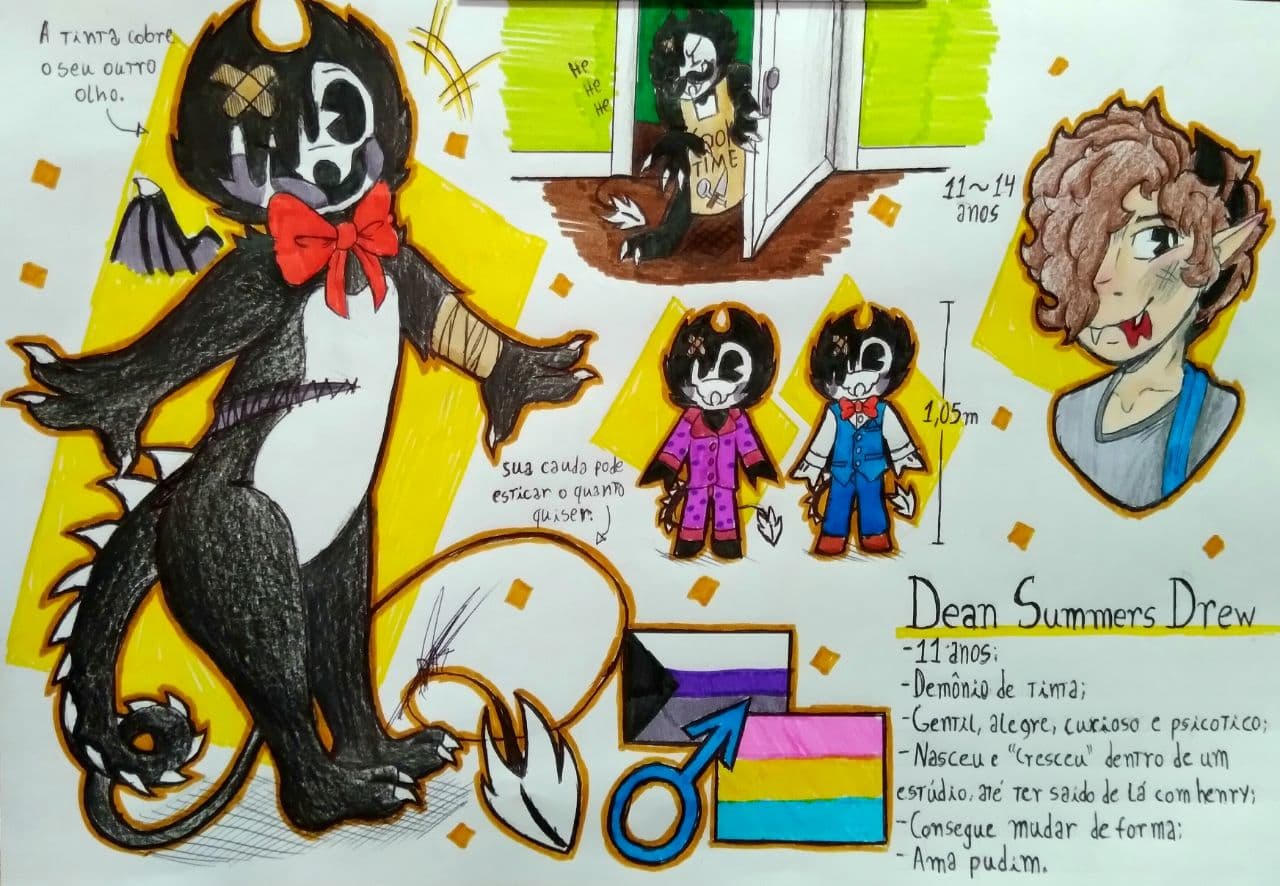 A TINTA COBRE
O SEU OUTRO
OLHO.
HE
HE
HE
COOL
TIME
11~14
anos
1,05m
SUA CAUDA PODE
ESTICAR O QUANTO
QUISER.
Dean Summers Drew
-11 anos;
-Demônio de Tinta;
-Gentil, alegre, curioso e psicotico;
-Nasceu e "Cresceu" dentro de um
estúdio, até ter saido de lá com henry;
-Consegue mudar de forma;
-Ama pudim.